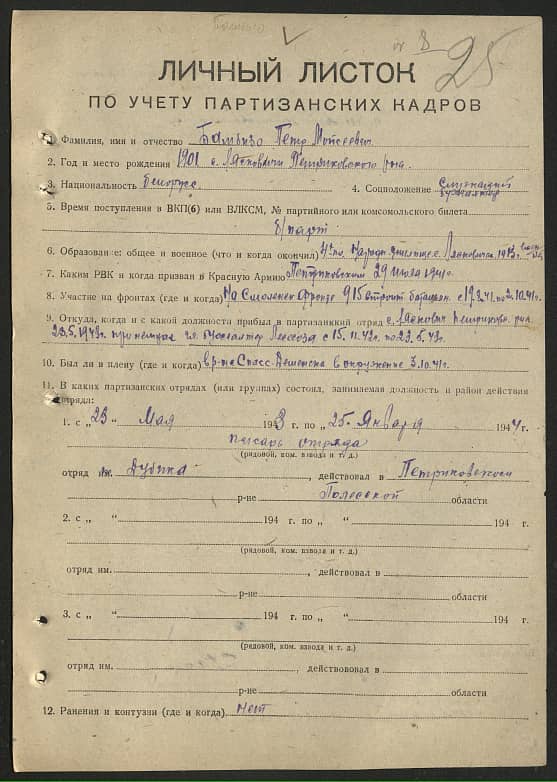 8 25
ЛИЧНЫЙ ЛИСТОК
ПО УЧЕТУ ПАРТИЗАНСКИХ КАДРОВ
Фамилия, имя и отчество Петр Мойсеевич
2. Год и место рождения 1901 с. Ляскович Петриковского р-на.
3. Национальность Белорус 4. Соцположение Служащий
5. Время поступления в ВКП(б) или ВЛКСМ, № партийного или комсомольского билета
б/парт
6. Образован е: общее и военное (что и когда окончил) 1913
7. Каким РВК и когда призван в Красную Армию Петриковским 29 июля 1941г.
8. Участие на фронтах (где и когда) На Смоленск. фронте 915 строит. батальон. с 19.8.41г по 2.10.41г.
9. Откуда, когда и с какой должности прибыл в партизанкий отряд с. Ляскович Петриков. рна.
23.5.1943г. при немцах гл. бухгалтер Лесхоза с 15.11.42г. по 23.5.43г.
10. Был ли в плену (где и когда) в р-не Спасс. Деменска в окружение 3.10.41г.
11. В каких партизанских отрядах (или группах) состоял, занимаемая должность и район действия
отряда:
1. с „ 23 “ Мая 1943 г. по „ 25 “ Января 1944 г.
писарь отряда
(рядовой, ком. взвода и т. д.)
отряд им. , действовал в Петриковском
р-не Полесской области
2. с „ “ 194 г. по „ “ 194 г.
(рядовой, ком. взвода и т. д.)
отряд им. , действовал в
р-не области
3. с „ “ 194 г. по „ “ 194 г.
(рядовой, ком. взвода и т. д.)
отряд им. , действововал в
р-не области
12. Ранения и контузии (где и когда) нет